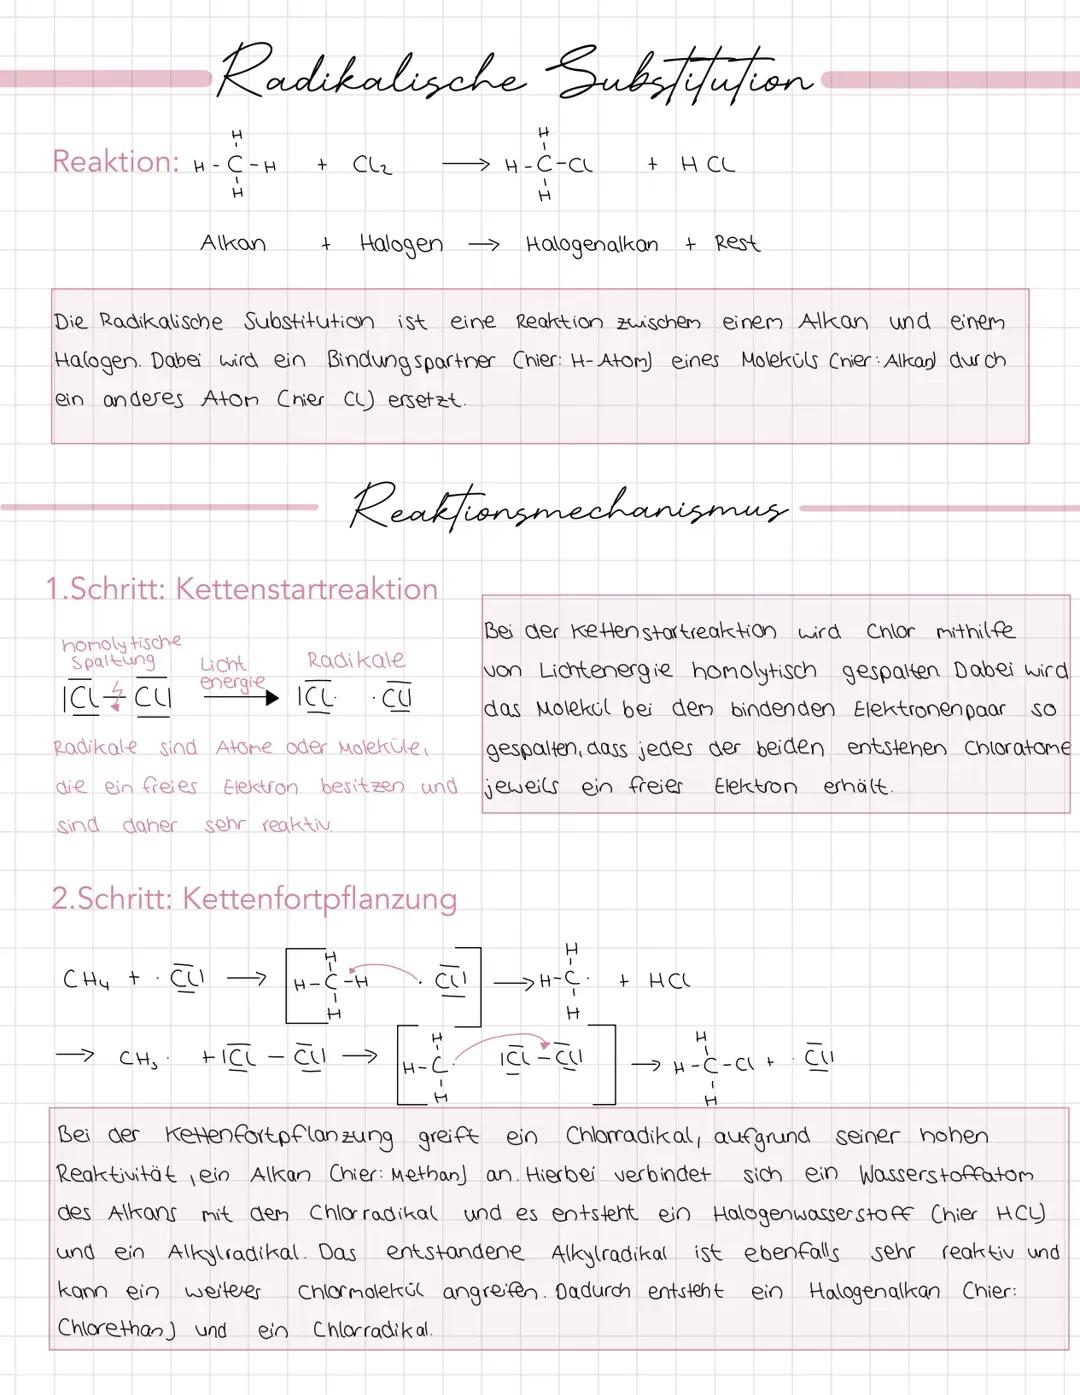 Radikalische Substitution
Reaktion: H - C - H + Cl₂ → H - C - Cl + HCl
Alkan + Halogen → Halogenalkan + Rest
Die Radikalische Substitution ist eine Reaktion zwischem einem Alkan und einem
Halogen. Dabei wird ein Bindungspartner (hier: H-Atom) eines Moleküls (hier: Alkan) durch
ein anderes Atom (hier Cl) ersetzt.
Reaktionsmechanismus
1.Schritt: Kettenstartreaktion
homolytische
Spaltung
Licht
energie
Radikale
|Cl - Cl| → |Cl· ·Cl|
Radikale sind Atome oder Moleküle,
die ein freies Elektron besitzen und
sind daher sehr reaktiv.
Bei der Kettenstartreaktion wird Chlor mithilfe
von Lichtenergie homolytisch gespalten Dabei wird
das Molekül bei dem bindenden Elektronenpaar so
gespalten, dass jedes der beiden entstehen Chloratome
jeweils ein freies Elektron erhält.
2.Schritt: Kettenfortpflanzung
CH₄ + ·Cl| → [H - C - H ·Cl|] → H - C· + HCl
→ CH₃· + |Cl - Cl| → [H - C· |Cl - Cl|] → H - C - Cl + ·Cl|
Bei der Kettenfortpflanzung greift ein Chlorradikal, aufgrund seiner hohen
Reaktivität, ein Alkan (hier: Methan) an. Hierbei verbindet sich ein Wasserstoffatom
des Alkans mit dem Chlorradikal und es entsteht ein Halogenwasserstoff (hier HCl)
und ein Alkylradikal. Das entstandene Alkylradikal ist ebenfalls sehr reaktiv und
kann ein weiteres Chlormolekül angreifen. Dadurch entsteht ein Halogenalkan (hier:
Chlorethan) und ein Chlorradikal.